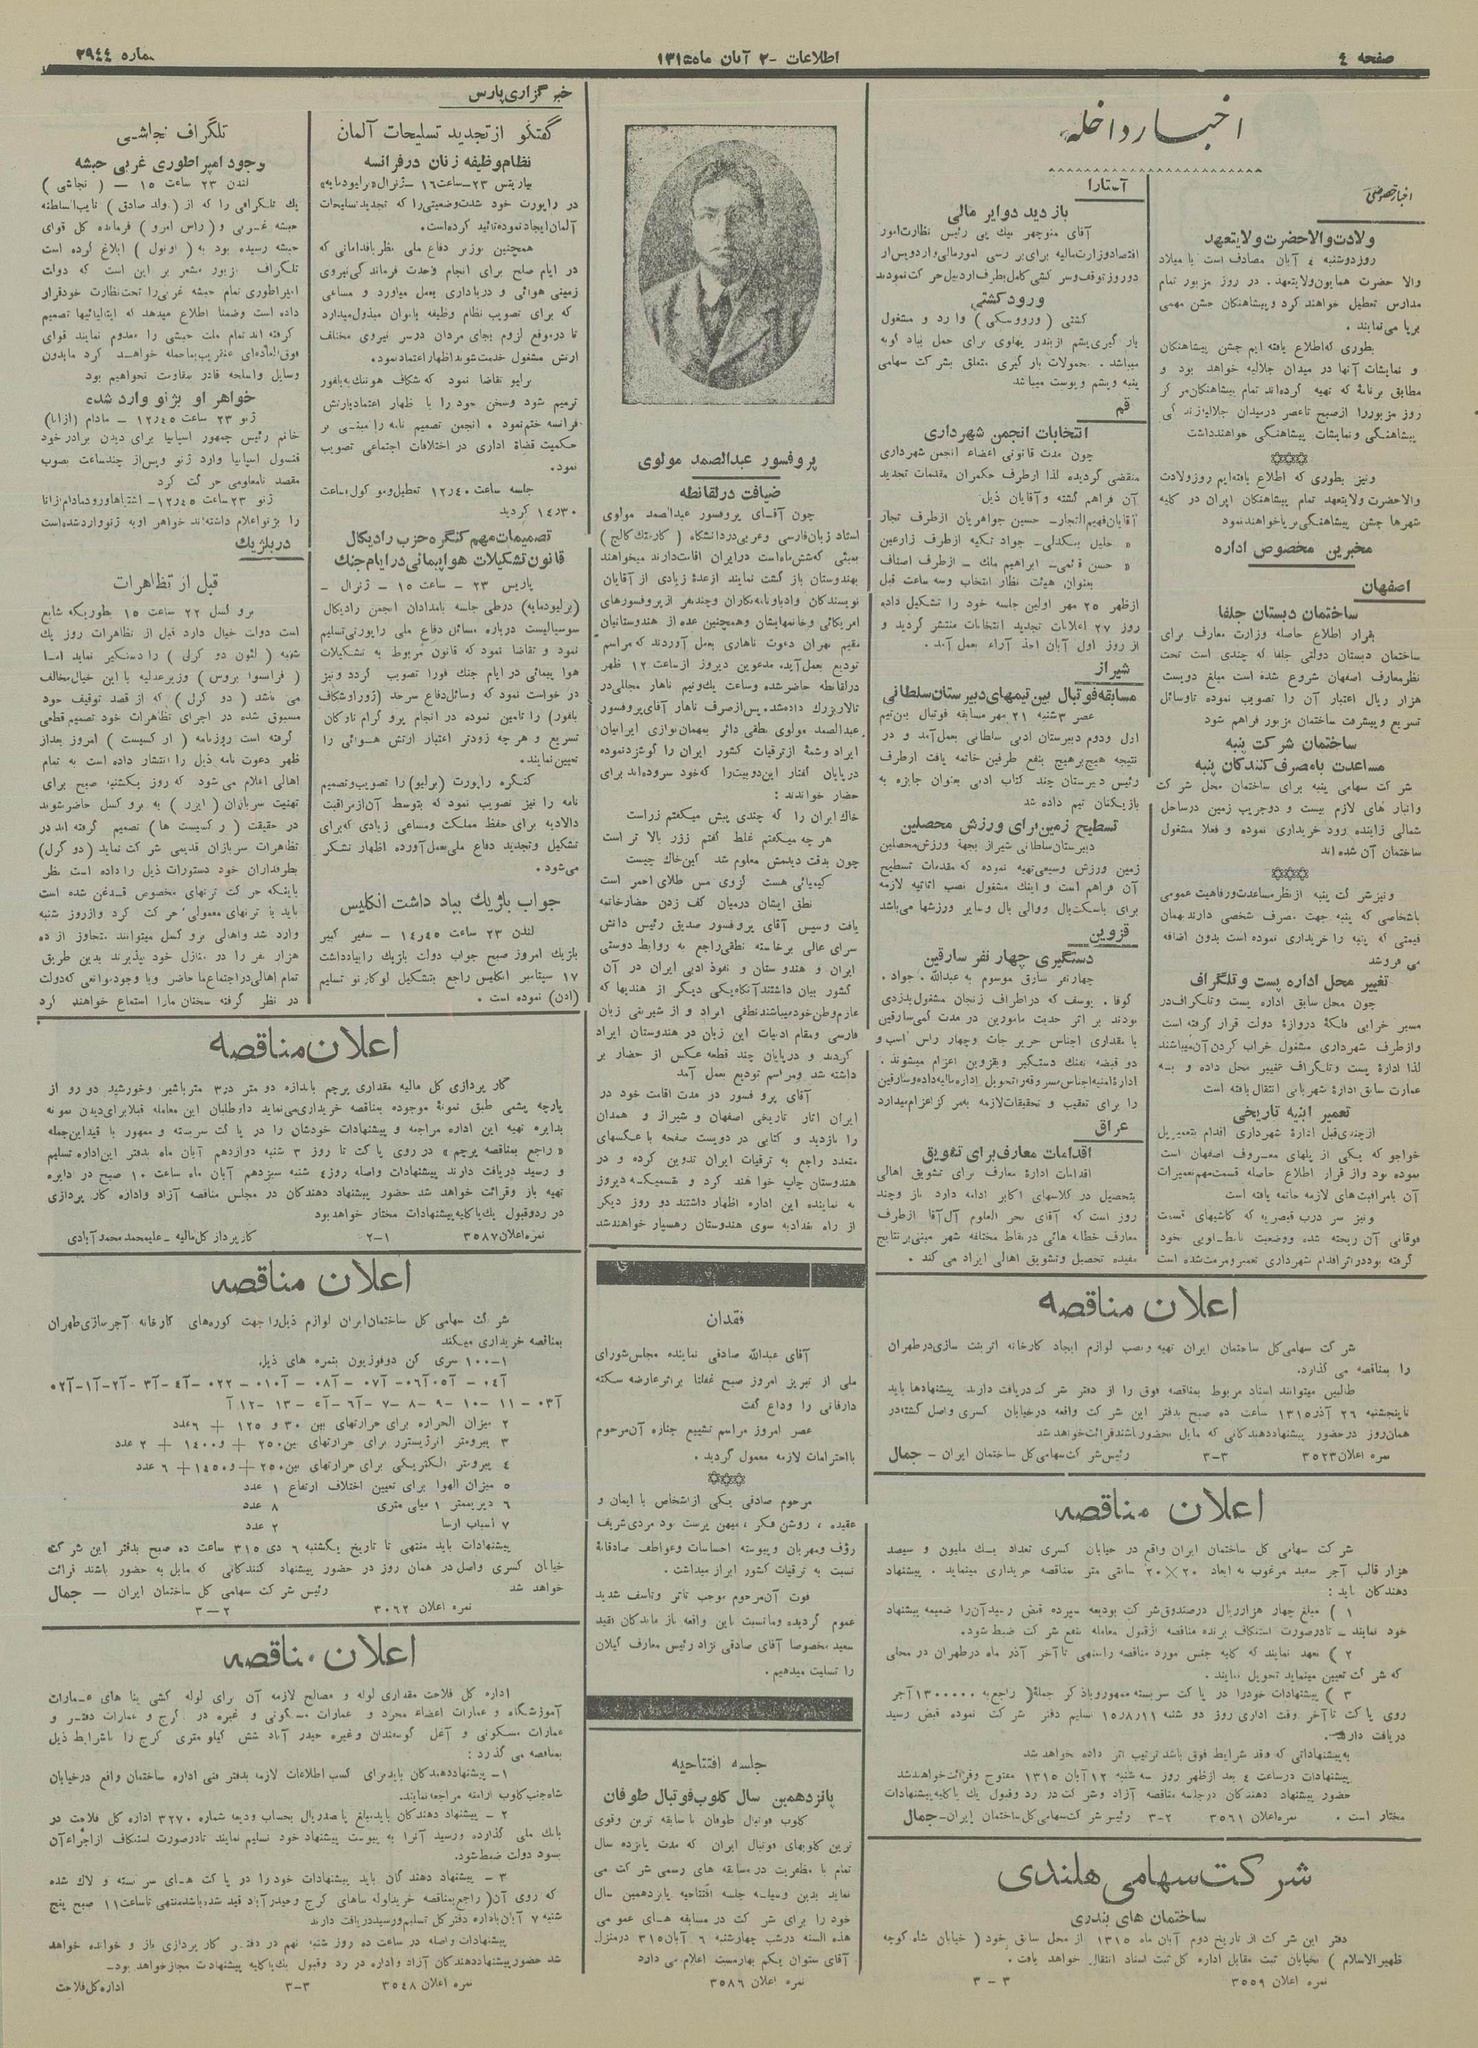 صفحه ٤
اطلاعات - ٢ آبان ماه ١٣١٥
شماره ٢٩٤٤
اخبار داخله
اخبار خصوصی
ولادت والاحضرت ولایتعهد
روز دوشنبه ٤ آبان مصادف است با میلاد
والا حضرت همایون ولایتعهد . در روز مزبور تمام
مدارس تعطیل خواهند کرد و پیشاهنگان جشن مهمی
برپا می‌نمایند .
بطوری که اطلاع یافته ایم جشن پیشاهنگان
و نمایشات آنها در میدان جلالیه خواهد بود و
مطابق برنامهٔ که تهیه کرده‌اند تمام پیشاهنگان مرکز
روز مزبور را از صبح تا عصر در میدان جلالیه زندگی
پیشاهنگی و نمایشات پیشاهنگی خواهند داشت
ونیز بطوری که اطلاع یافته‌ایم روز ولادت
والاحضرت ولایتعهد تمام پیشاهنگان ایران در کلیه
شهرها جشن پیشاهنگی برپا خواهند نمود
مخبرین مخصوص اداره
اصفهان
ساختمان دبستان جلفا
بقرار اطلاع حاصله وزارت معارف برای
ساختمان دبستان دولتی جلفا که چندی است تحت
نظر معارف اصفهان شروع شده است مبلغ دویست
هزار ریال اعتبار آن را تصویب نموده تا وسائل
تسریع و پیشرفت ساختمان مزبور فراهم شود
ساختمان شرکت پنبه
مساعدت با مصرف کنندگان پنبه
شرکت سهامی پنبه برای ساختمان محل شرکت
وانبار های لازم بیست و دو جریب زمین در ساحل
شمالی زاینده رود خریداری نموده و فعلا مشغول
ساختمان آن شده اند
ونیز شرکت پنبه از نظر مساعدت و رفاهیت عمومی
باشخاصی که پنبه جهت مصرف شخصی دارند بهمان
قیمتی که پنبه را خریداری نموده است بدون اضافه
می فروشد
تغییر محل اداره پست و تلگراف
چون محل سابق اداره پست و تلگراف در
مسیر خرابی فلکهٔ دروازهٔ دولت قرار گرفته است
و از طرف شهرداری مشغول خراب کردن آن میباشند
لذا ادارهٔ پست و تلگراف تغییر محل داده و به
عمارت سابق ادارهٔ شهربانی انتقال یافته است
تعمیر ابنیه تاریخی
از چندی قبل ادارهٔ شهرداری اقدام بتعمیر پل
خواجو که یکی از پلهای معروف اصفهان است
نموده بود و از قرار اطلاع حاصله قسمت مهم تعمیرات
آن با مراقبت‌های لازمه خاتمه یافته است
ونیز سر درب قیصریه که کاشیهای قسمت
فوقانی آن ریخته شده و وضعیت نامطلوبی بخود
گرفته بود در اثر اقدام شهرداری تعمیر و مرمت شده است
آستارا
بازدید دوایر مالی
آقای منوچهر بیک پی رئیس نظارت امور
اقتصاد وزارت مالیه برای بررسی امور مالی وارد و پس از
دو روز توقف و سرکشی کامل بطرف اردبیل حرکت نمودند
ورود کشتی
کشتی ( وروسکی ) وارد و مشغول
بار گیری پشم از بندر پهلوی برای حمل بباد کوبه
میباشد . محمولات بار گیری متعلق بشرکت سهامی
پنبه و پشم و پوست میباشد
قم
انتخابات انجمن شهرداری
چون مدت قانونی اعضاء انجمن شهرداری
منقضی گردیده لذا از طرف حکمران مقدمات تجدید
آن فراهم گشته و آقایان ذیل
آقایان فهیم‌التجار - حسین جواهریان از طرف تجار
» خلیل بیگدلی - جواد تکیه از طرف زارعین
» حسن قمی - ابراهیم ملک - از طرف اصناف
بعنوان هیئت نظار انتخاب و سه ساعت قبل
از ظهر ٢٥ مهر اولین جلسه خود را تشکیل داده
روز ٢٧ اعلانات تجدید انتخابات منتشر گردید و
از روز اول آبان اخذ آراء بعمل آمد .
شیراز
مسابقه فوتبال بین تیمهای دبیرستان سلطانی
عصر ٣ شنبه ٢١ مهر مسابقه فوتبال بین تیم
اول و دوم دبیرستان ادبی سلطانی بعمل آمد و در
نتیجه هیچ بر هیچ بنفع طرفین خاتمه یافت از طرف
رئیس دبیرستان چند کتاب ادبی بعنوان جایزه به
بازیکنان تیم داده شد
تسطیح زمین برای ورزش محصلین
دبیرستان سلطانی شیراز بجهة ورزش محصلین
زمین ورزش وسیعی تهیه نموده که مقدمات تسطیح
آن فراهم است و اینک مشغول نصب اثاثیه لازمه
برای باسکت‌بال و والی بال و سایر ورزشها می‌باشد
قزوین
دستگیری چهار نفر سارقین
چهار نفر سارق موسوم به عبدالله . جواد .
گوفا . یوسف که در اطراف زنجان مشغول بدزدی
بودند بر اثر جدیت مامورین در مدت کمی سارقین
با مقداری اجناس حریر جات و چهار راس اسب و
دو قبضه تفنگ دستگیر و بقزوین اعزام میشوند .
ادارهٔ امنیه اجناس مسروقه را تحویل ادارهٔ مالیه داده و سارقین
را برای تعقیب و تحقیقات لازمه بمرکز اعزام میدارد
عراق
اقدامات معارف برای تشویق
اقدامات ادارهٔ معارف برای تشویق اهالی
بتحصیل در کلاسهای اکابر ادامه دارد باز و چند
روز است که آقای بحر العلوم آل‌آقا از طرف
معارف خطابه هائی در نقاط مختلفه شهر مبنی بر نتایج
مفیده تحصیل و تشویق اهالی ایراد می کند .
پروفسور عبدالصمد مولوی
ضیافت در لقانطه
چون آقای پروفسور عبدالصمد مولوی
استاد زبان فارسی و عربی در دانشگاه ( کارنتک کالج )
بمبئی که شش ماه است در ایران اقامت دارند میخواهند
بهندوستان باز گشت نمایند از عدهٔ زیادی از آقایان
نویسندگان و ادبا و نامه‌نگاران و چند نفر از پروفسورهای
امریکائی و خانمهایشان و همچنین عده از هندوستانیان
مقیم تهران دعوت ناهاری بعمل آوردند که مراسم
تودیع بعمل آید . مدعوین دیروز از ساعت ١٢ ظهر
در لقانطه حاضر شده و ساعت یک و نیم ناهار مجللی در
تالار بزرگ داده شد . پس از صرف ناهار آقای پروفسور
عبدالصمد مولوی نطقی دائر بمهمان نوازی ایرانیان
ایراد و شمهٔ از ترقیات کشور ایران را گوشزد نموده
در پایان گفتار این دو بیت را که خود سروده‌اند برای
حضار خواندند :
خاک ایران را که چندی پیش میگفتم زر است
هر چه میگفتم غلط گفتم ززر بالا تر است
چون بدقت دیدمش معلوم شد کین خاک چیست
کیمیائی هست کزوی مس طلای احمر است
نطق ایشان درمیان کف زدن حضار خاتمه
یافت و سپس آقای پروفسور صدیق رئیس دانش
سرای عالی برخاسته نطقی راجع به روابط دوستی
ایران و هندوستان و نفوذ ادبی ایران در آن
کشور بیان داشتند آنگاه یکی دیگر از هندیها که
عازم وطن خود میباشند نطقی ایراد و از شیرینی زبان
فارسی و مقام ادبیات این زبان در هندوستان ایراد
کردند و در پایان چند قطعه عکس از حضار بر
داشته شد و مراسم تودیع بعمل آمد
آقای پروفسور در مدت اقامت خود در
ایران آثار تاریخی اصفهان و شیراز و همدان
را بازدید و کتابی در دویست صفحه با عکسهای
متعدد راجع به ترقیات ایران تدوین کرده و در
هندوستان چاپ خواهند کرد و قسمیکه دیروز
به نماینده این اداره اظهار داشتند دو روز دیگر
از راه بغداد به سوی هندوستان رهسپار خواهند شد
فقدان
آقای عبدالله صادقی نماینده مجلس شورای
ملی از تبریز امروز صبح غفلتا بر اثر عارضه سکته
دارفانی را وداع گفت
عصر امروز مراسم تشییع جنازه آن مرحوم
با احترامات لازمه معمول گردید .
مرحوم صادقی یکی از اشخاص با ایمان و
عقیده ، روشن فکر ، میهن پرست بود مردی شریف
رؤف و مهربان و پیوسته احساسات و عواطف صادقانهٔ
نسبت به ترقیات کشور ابراز میداشت .
فوت آن مرحوم موجب تاثر و تاسف شدید
عموم گردیده و ما نسبت باین واقعه باز ماندگان فقید
سعید مخصوصا آقای صادقی نژاد رئیس معارف گیلان
را تسلیت میدهیم .
جلسه افتتاحیه
پانزدهمین سال کلوب فوتبال طوفان
کلوب فوتبال طوفان با سابقه ترین و قوی
ترین کلوبهای فوتبال ایران که مدت پانزده سال
تمام با مظفریت در مسابقه های رسمی شرکت می
نماید بدین وسیله جلسه افتتاحیه پانزدهمین سال
خود را برای شرکت در مسابقه های عمومی
هذه السنه درشب چهارشنبه ٦ آبان ٣١٥ در منزل
آقای ستوان یکم بهارمست اعلام می دارد
نمره اعلان ٣٥٨٦
خبرگزاری پارس
گفتگو از تجدید تسلیحات آلمان
نظام وظیفه زنان در فرانسه
بیاریتس ٢٣ - ساعت ١٦ - ژنرال « برایودمایه »
در راپورت خود شدت وضعیتی را که تجدید تسلیحات
آلمان ایجاد نموده تائید کرده است .
همچنین بوزیر دفاع ملی نظر باقداماتی که
در ایام صلح برای انجام وحدت فرماندگی نیروی
زمینی هوائی و دریاداری بعمل میاورد و مساعی
که برای تصویب نظام وظیفه بانوان مبذول میدارد
تا در موقع لزوم بجای مردان درسر نیروی مختلف
ارتش مشغول خدمت شوند اظهار اعتماد نمود .
برایو تقاضا نمود که شکاف هوننگ به بلفور
ترمیم شود و سخن خود را با ظهار اعتماد بارتش
فرانسه ختم نمود . انجمن تصمیم نامه را مبنی بر
حکمیت قضاة اداری در اختلافات اجتماعی تصویب
نمود .
جلسه ساعت ١٢٫٤٠ تعطیل و موکول بساعت
١٤٫٣٠ گردید
تصمیمات مهم کنگره حزب رادیکال
قانون تشکیلات هواپیمائی در ایام جنگ
پاریس ٢٣ - ساعت ١٥ - ژنرال -
(برایودمایه) درطی جلسه بامدادان انجمن رادیکال
سوسیالیست درباره مسائل دفاع ملی راپورتی تسلیم
نمود و تقاضا نمود که قانون مربوط به تشکیلات
هوا پیمائی در ایام جنگ فورا تصویب گردد و نیز
در خواست نمود که وسائل دفاع سرحد (ژورا و شکاف
بلفور) را تامین نموده در انجام پروگرام ناوگان
تسریع و هر چه زودتر اعتبار ارتش هوائی را
تعیین نمایند .
کنگره راپورت (برایو) را تصویب و تصمیم
نامه را نیز تصویب نمود که بتوسط آن از مراقبت
دالادیه برای حفظ مملکت و مساعی زیادی که برای
تشکیل و تجدید دفاع ملی بعمل آورده اظهار تشکر
می‌شود .
جواب بلژیک بیاد داشت انگلیس
لندن ٢٣ ساعت ١٤٫٤٥ - سفیر کبیر
بلژیک امروز صبح جواب دولت بلژیک را بیادداشت
١٧ سپتامبر انگلیس راجع بتشکیل لوکارنو تسلیم
(ادن) نموده است .
تلگراف نجاشی
وجود امپراطوری غربی حبشه
لندن ٢٣ ساعت ١٥ - ( نجاشی )
یک تلگرافی را که از ( ولد صادق ) نایب السلطنه
حبشه غربی و ( راس امرو ) فرمانده کل قوای
حبشه رسیده بود به ( اونول ) ابلاغ کرده است
تلگراف مزبور مشعر بر این است که دولت
امپراطوری تمام حبشه غربی را تحت نظارت خود قرار
داده است و ضمنا اطلاع میدهد که ایتالیائیها تصمیم
گرفته اند تمام ملت حبشی را معدوم نمایند قوای
فوق‌العاده‌ای عنقریب بما حمله خواهند کرد ما بدون
وسایل و اسلحه قادر بمقاومت نخواهیم بود
خواهر او بژنو وارد شده
ژنو ٢٣ ساعت ١٢٫٤٥ - مادام (ازانا)
خانم رئیس جمهور اسپانیا برای دیدن برادر خود
قنسول اسپانیا وارد ژنو و پس از چند ساعت بصوب
مقصد نامعلومی حرکت کرد
ژنو ٢٣ ساعت ١٢٫٤٥ - اشتباها ورود مادام ازانا
را بژنو اعلام داشته‌اند خواهر او به ژنو وارد شده است
در بلژیک
قبل از تظاهرات
بروکسل ٢٢ ساعت ١٥ طوریکه شایع
است دولت خیال دارد قبل از تظاهرات روز یک
شنبه ( لئون دو گرل ) را دستگیر نماید اما
( فرانسوا بروس ) وزیر عدلیه با این خیال مخالف
می باشد ( دو گرل ) که از قصد توقیف خود
مسبوق شده در اجرای تظاهرات خود تصمیم قطعی
گرفته است روزنامه ( ارکسیست ) امروز بعد از
ظهر دعوت نامه ذیل را انتشار داده است به تمام
اهالی اعلام می شود که روز یکشنبه صبح برای
تهنیت سربازان ( ایزر ) به بروکسل حاضر شوند
در حقیقت ( رکسیست ها ) تصمیم گرفته اند در
تظاهرات سربازان قدیمی شرکت نماید (دو گرل)
بطرفداران خود دستورات ذیل را داده است نظر
باینکه حرکت ترنهای مخصوص قدغن شده است
باید با ترنهای معمولی حرکت کرد و از روز شنبه
وارد شد و اهالی بروکسل میتوانند متجاوز از ده
هزار نفر را در منازل خود بپذیرند بدین طریق
تمام اهالی در اجتماع ما حاضر و با وجود موانعی که دولت
در نظر گرفته سخنان ما را استماع خواهند کرد
اعلان مناقصه
کار پردازی کل مالیه مقداری پرچم باندازه دو متر در ٣ متر با شیر و خورشید دو رو از
پارچه پشمی طبق نمونهٔ موجوده بمناقصه خریداری می‌نماید داوطلبان این معامله قبلا برای دیدن نمونه
بدایره تهیه این اداره مراجعه و پیشنهادات خودشان را در پاکت سربسته و ممهور با قید این جمله
« راجع بمناقصه پرچم » در روی پاکت تا روز ٣ شنبه دوازدهم آبان ماه بدفتر این اداره تسلیم
و رسید دریافت دارند پیشنهادات واصله روز ٤ شنبه سیزدهم آبان ماه ساعت ١٠ صبح در دایره
تهیه باز و قرائت خواهد شد حضور پیشنهاد دهندگان در مجلس مناقصه آزاد و اداره کار پردازی
در رد و قبول یک یا کلیه پیشنهادات مختار خواهد بود
نمره اعلان ٣٥٨٧ ١-٢ کار پرداز کل مالیه - علیمحمد محمد آبادی
اعلان مناقصه
شرکت سهامی کل ساختمان ایران لوازم ذیل را جهت کوره‌های کارخانه آجر سازی طهران
بمناقصه خریداری میکند
١-١٠٠ سری کن دوفوزیون بنمره های ذیل
٢ میزان الحراره برای حرارتهای بین ٣٠ و ١٢٥ + ٦ عدد
٣ پیرومتر انرژیسترر برای حرارتهای بین ٢٥٠ + و ١٤٠٠ + ٢ عدد
٤ پیرومتر الکتریکی برای حرارتهای بین ٢٥٠ + و ١٤٥٠ + ٦ عدد
٥ میزان الهوا برای تعیین اختلاف ارتفاع ١ عدد
٦ دپریممتر ١ میلی متری ٨ عدد
٧ اسباب ارسا ٢ عدد
پیشنهادات باید منتهی تا تاریخ یکشنبه ٦ دی ٣١٥ ساعت ده صبح بدفتر این شرکت
خیابان کسری واصل در همان روز در حضور پیشنهاد کنندگانی که مایل به حضور باشند قرائت
خواهد شد رئیس شرکت سهامی کل ساختمان ایران - جمال
نمره اعلان ٣٠٦٢ ٢-٣
اعلان مناقصه
اداره کل فلاحت مقداری لوله و مصالح لازمه آن برای لوله کشی بنا های عمارات
آموزشگاه و عمارات اعضاء مجرد و عمارات مسکونی و غیره در کرج و عمارات دفتر و
عمارات مسکونی و آغل گوسفندان و غیره حیدر آباد شش کیلو متری کرج را باشرایط ذیل
بمناقصه می گذارد :
١- پیشنهاد دهندگان باید برای کسب اطلاعات لازمه بدفتر فنی اداره ساختمان واقع در خیابان
شاه جنب کلوب ارامنه مراجعه نمایند .
٢ - پیشنهاد دهندگان باید مبلغ پانصد ریال بحساب ودیعه شماره ٣٢٧٠ اداره کل فلاحت در
بانک ملی گذارده و رسید آنرا به پیوست پیشنهاد خود تسلیم نمایند تا در صورت استنکاف از اجراء آن
بسود دولت ضبط شود .
٣ - پیشنهاد دهندگان باید پیشنهادات خود را در پاکت های سر بسته و لاک شده
که روی آن ( راجع بمناقصه خرید لوله بناهای کرج و حیدر آباد قید شده باشد منتهی تا ساعت ١١ صبح پنج
شنبه ٧ آبان باداره دفتر کل تسلیم و رسید دریافت دارند
پیشنهادات واصله در ساعت ده روز شنبه نهم در دفتر کار پردازی باز و خوانده خواهد
شد حضور پیشنهاد دهندگان آزاد و اداره در رد و قبول یک یا کلیه پیشنهادت مجاز خواهد بود -
نمره اعلان ٣٥٤٨ ٣-٣ اداره کل فلاحت
اعلان مناقصه
شرکت سهامی کل ساختمان ایران تهیه و نصب لوازم ایجاد کارخانه اتربنت سازی در طهران
را بمناقصه می گذارد .
طالبین میتوانند اسناد مربوط بمناقصه فوق را از دفتر شرکت دریافت دارند پیشنهادها باید
تا پنجشنبه ٢٦ آذر ١٣١٥ ساعت ده صبح بدفتر این شرکت واقعه در خیابان کسری واصل گشته در
همان روز در حضور پیشنهاد دهندگانی که مایل بحضور باشند قرائت خواهد شد
نمره اعلان ٣٥٢٣ ٣-٣ رئیس شرکت سهامی کل ساختمان ایران - جمال
اعلان مناقصه
شرکت سهامی کل ساختمان ایران واقع در خیابان کسری تعداد یک ملیون و سیصد
هزار قالب آجر سفید مرغوب به ابعاد ٢٠×٢٠ سانتی متر بمناقصه خریداری مینماید . پیشنهاد
دهندگان باید :
١ ) مبلغ چهار هزار ریال در صندوق شرکت بودیعه سپرده قبض رسید آن را ضمیمه پیشنهاد
خود نمایند - تا در صورت استنکاف برنده مناقصه از قبول معامله بنفع شرکت ضبط شود .
٢ ) تعهد نمایند که کلیه جنس مورد مناقصه را منتهی تا آخر آذر ماه در طهران در محلی
که شرکت تعیین مینماید تحویل نمایند .
٣ ) پیشنهادات خود را در پاکت سر بسته ممهور و با ذکر جملهٔ ( راجع به ١٣٠٠٠٠٠ آجر
روی پاکت تا آخر وقت اداری روز دو شنبه ١٥/٨/١١ تسلیم دفتر شرکت نموده قبض رسید
دریافت دارند .
به پیشنهاداتی که فاقد شرایط فوق باشد ترتیب اثر داده نخواهد شد
پیشنهادات در ساعت ٤ بعد از ظهر روز سه شنبه ١٢ آبان ١٣١٥ مفتوح و قرائت خواهند شد
حضور پیشنهاد دهندگان در جلسه مناقصه آزاد و شرکت در رد و قبول یک یا کلیه پیشنهادات
مختار است . نمره اعلان ٣٥٦١ ٢-٣ رئیس شرکت سهامی کل ساختمان ایران - جمال
شرکت سهامی هلندی
ساختمان های بندری
دفتر این شرکت از تاریخ دوم آبان ماه ١٣١٥ از محل سابق خود ( خیابان شاه کوچه
ظهیرالاسلام ) بخیابان ثبت مقابل اداره کل ثبت اسناد انتقال خواهد یافت .
نمره اعلان ٣٥٥٩ ٣-٣